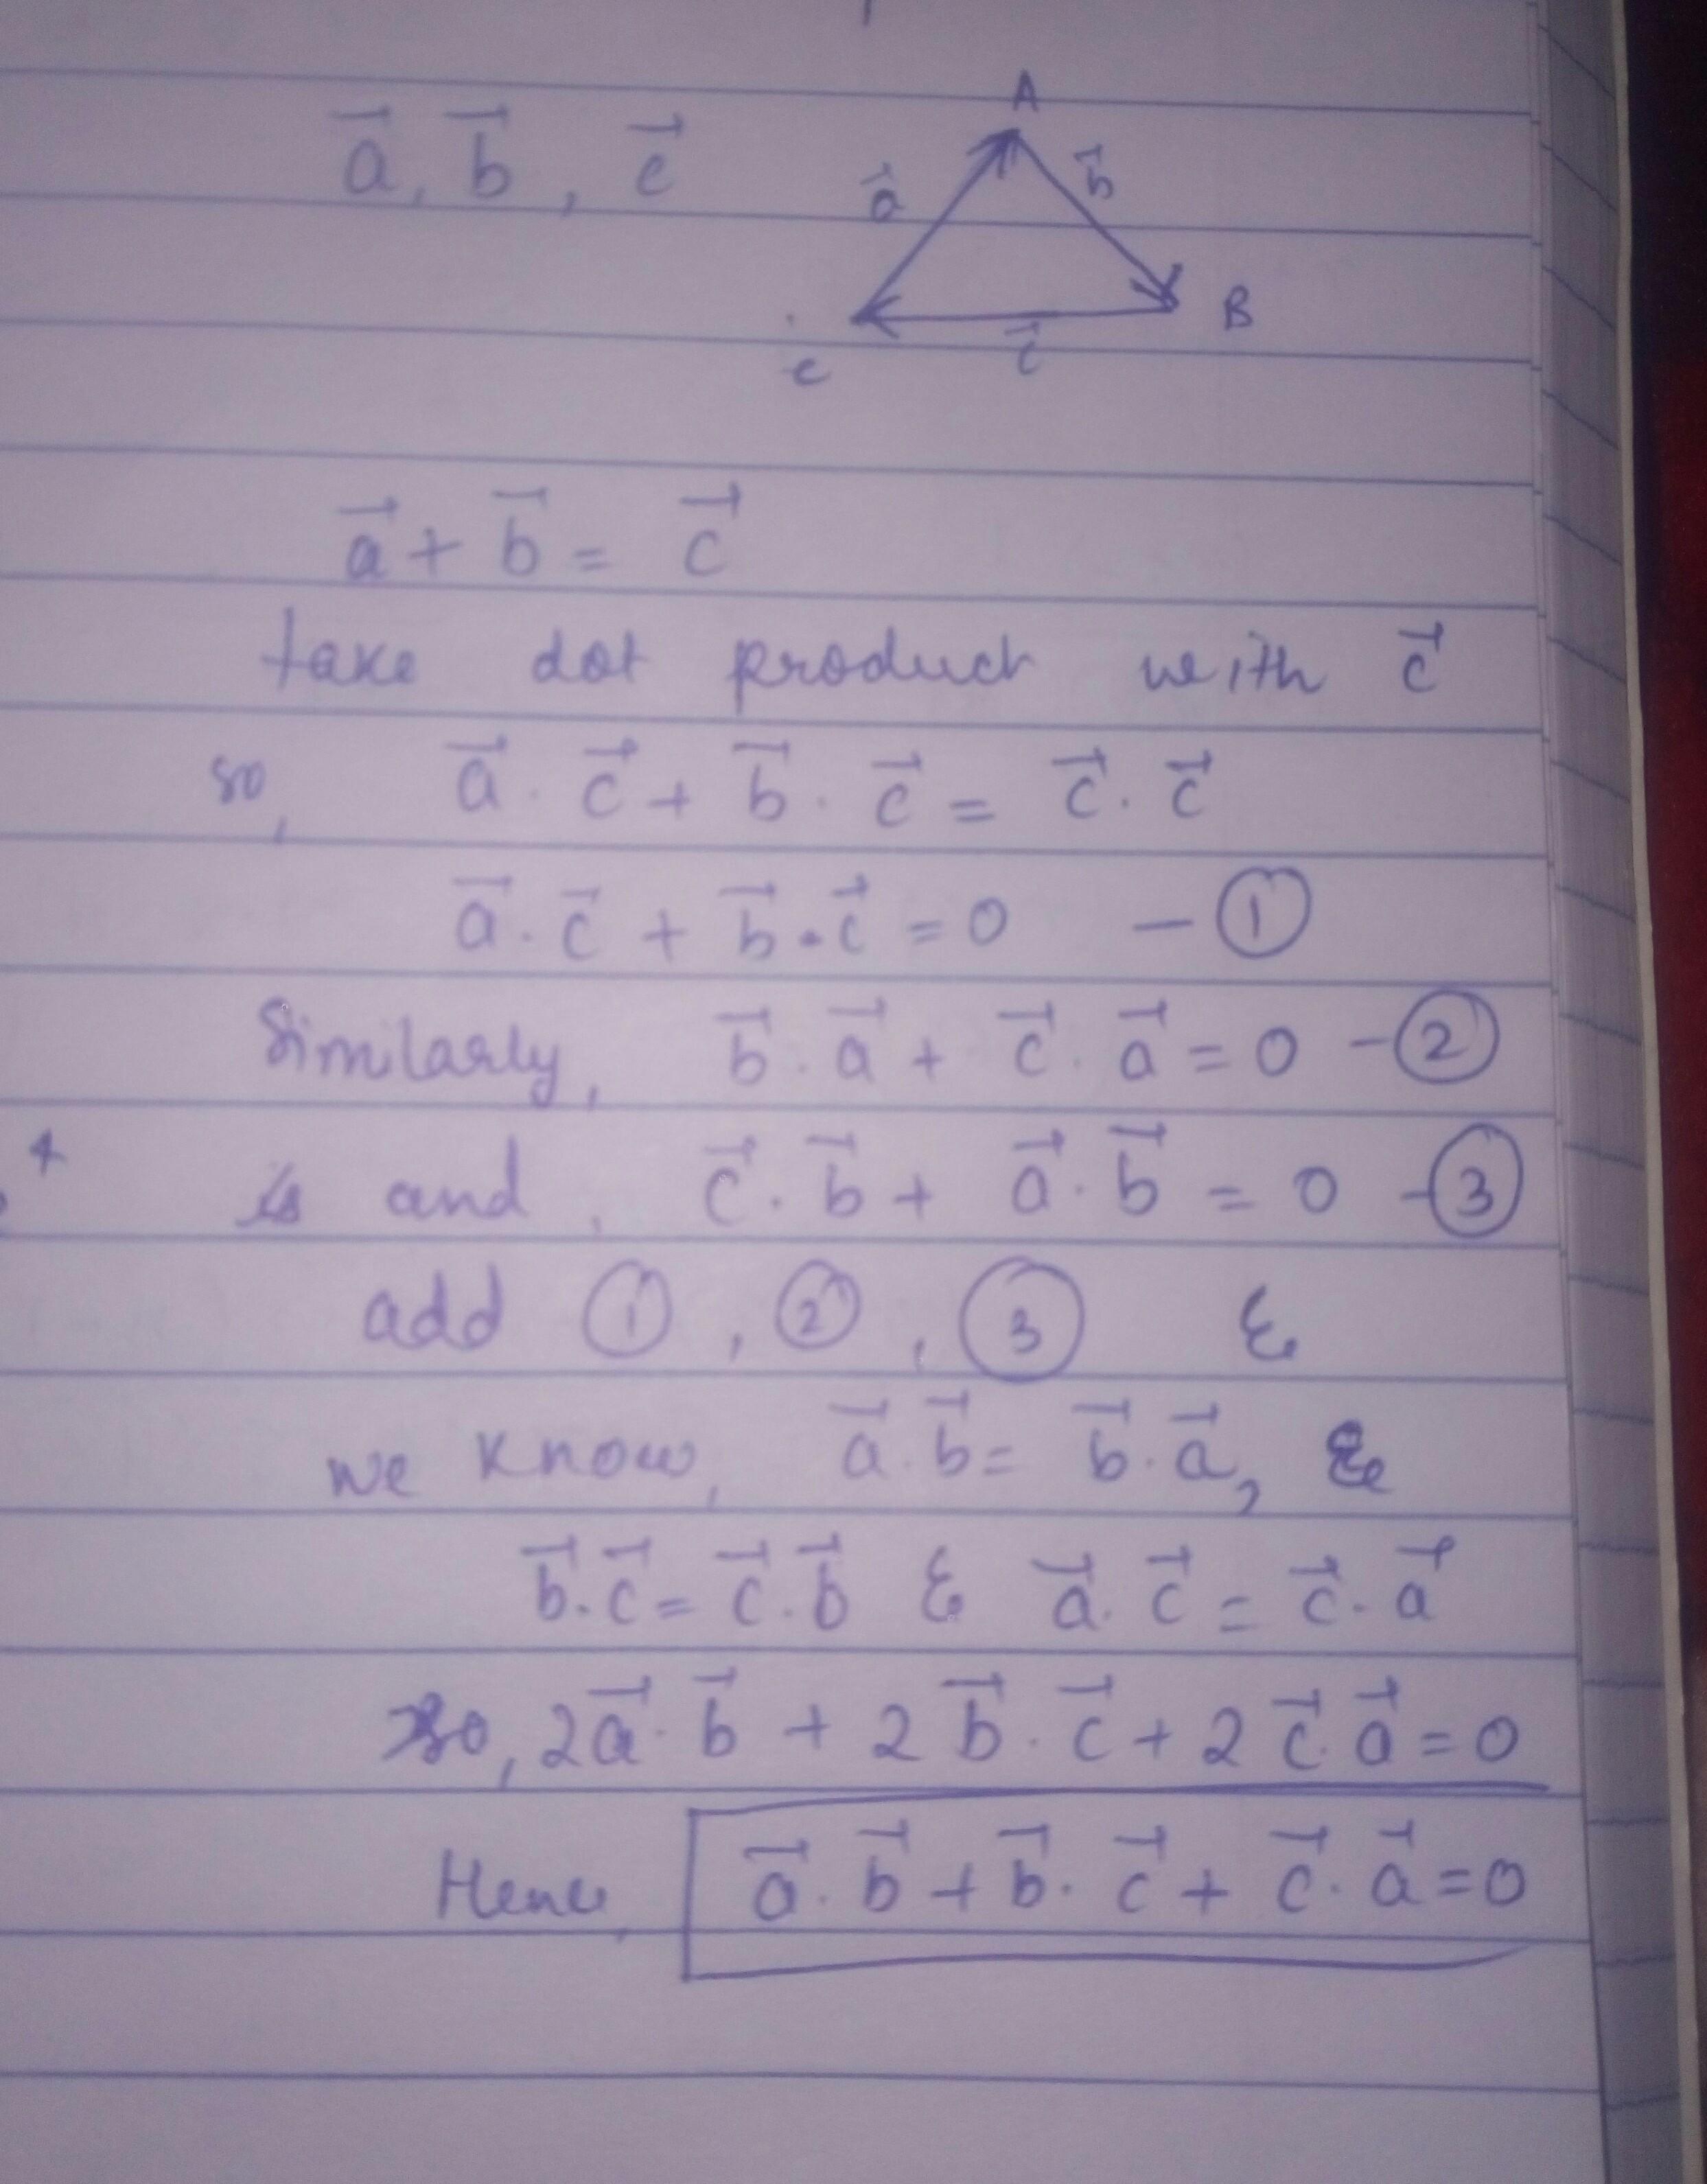 A
a⃗, b⃗, c⃗
a⃗ b⃗
B
c c⃗
a⃗ + b⃗ = c⃗
take dot product with c⃗
so, a⃗ · c⃗ + b⃗ · c⃗ = c⃗ · c⃗
a⃗ · c⃗ + b⃗ · c⃗ = 0 — ①
Similarly, b⃗ · a⃗ + c⃗ · a⃗ = 0 — ②
is and, c⃗ · b⃗ + a⃗ · b⃗ = 0 — ③
add ①, ②, ③ &
we know, a⃗ · b⃗ = b⃗ · a⃗, &
b⃗ · c⃗ = c⃗ · b⃗ & a⃗ · c⃗ = c⃗ · a⃗
so, 2a⃗ · b⃗ + 2b⃗ · c⃗ + 2c⃗ · a⃗ = 0
Hence, a⃗ · b⃗ + b⃗ · c⃗ + c⃗ · a⃗ = 0